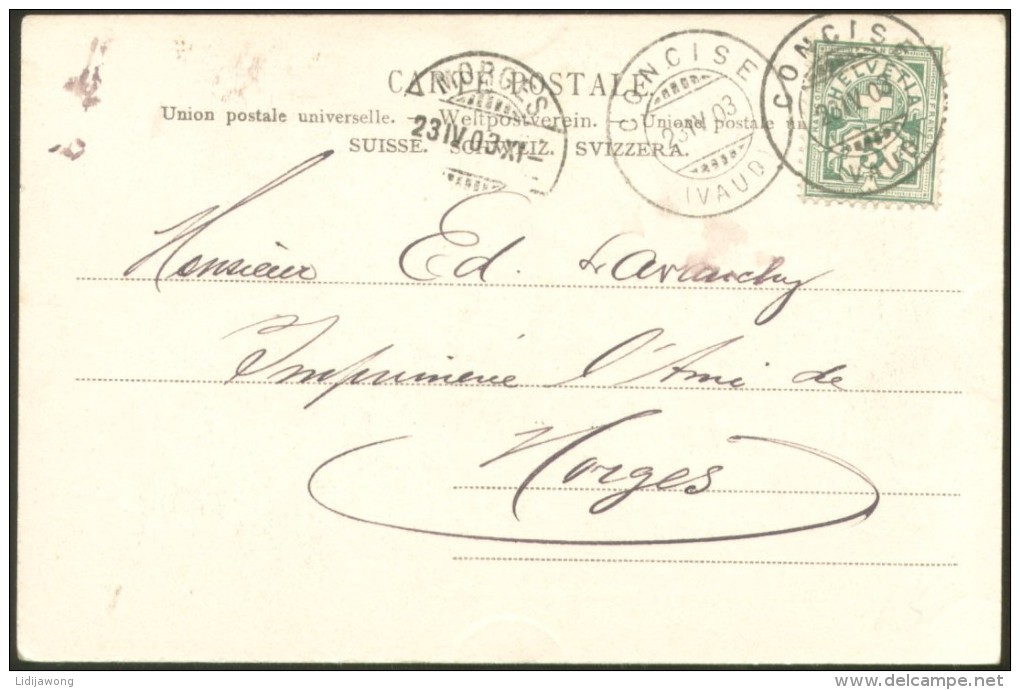 CARTE POSTALE.
Union postale universelle. — Weltpostverein. — Unione postale
SUISSE. SCHWEIZ. SVIZZERA.
MORGES
23 IV 03 XI
CONCISE
23 IV 03
(VAUD)
CONCISE
IV 03
(VAUD)
HELVETIA
Monsieur Ed. Lavanchy
Imprimerie l'Ami de
Morges
Lidijawong